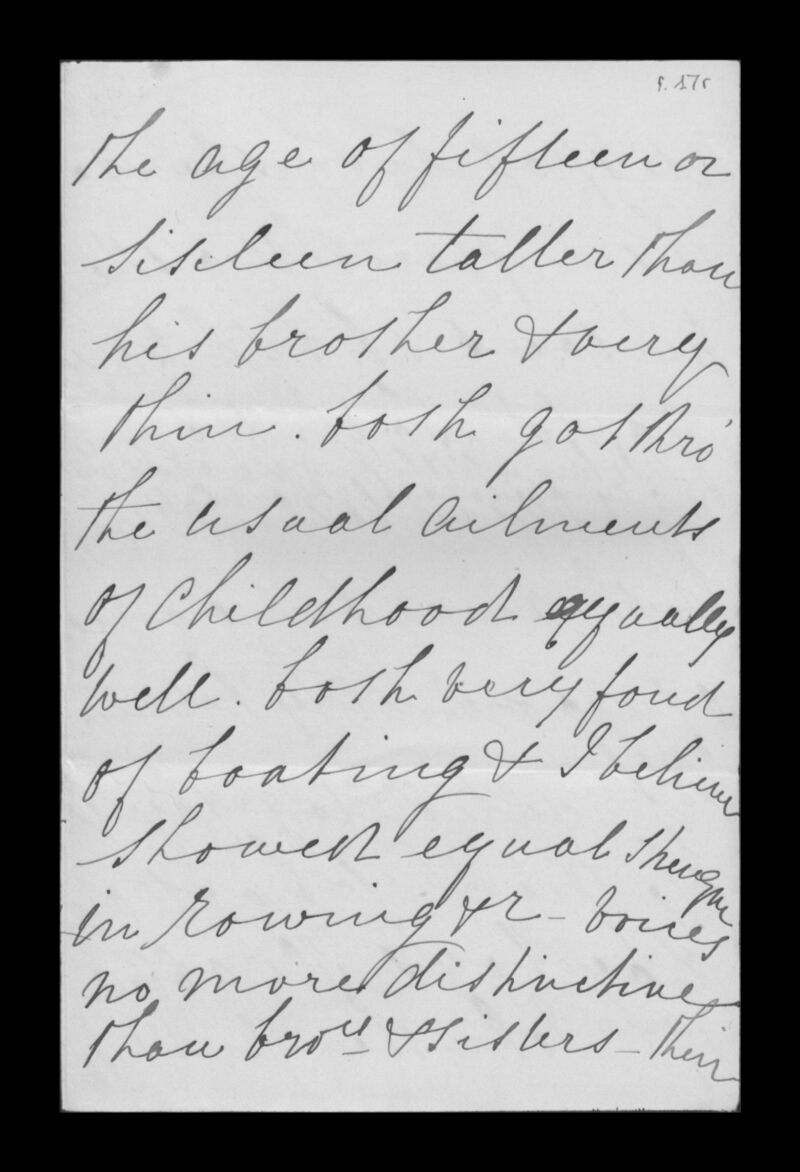 f. 17r
the age of fifteen or
sixteen taller than
his brother & very
thin. both got thro'
the usual ailments
of childhood equally
well. both very fond
of boating & I believe
showed equal strength
in rowing &c - voices
no more distinctive
than bro:rs & sisters - their